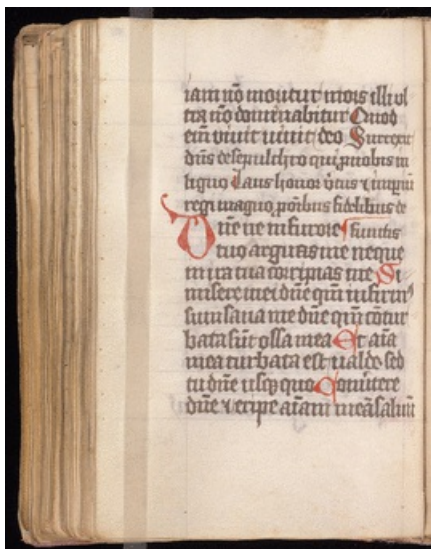 iam nō moritur mors illi ul
tra nō dominabitur Quod
em̄ viuit uiuit deo Surrexit
dn̄s de sepulchro qui p̄ nobis in
ligno Laus honor v̄tus ⁊ imp̄iū
regi magno pro oībus fidelibus de
Dn̄e ne in furore functis
tuo arguas me neque
in ira tua corripias me Mi
misere mei dn̄e qm̄ infirm᷒
sum sana me dn̄e qm̄ cōtur
bata sūt ossa mea Et aīa
mea turbata est ualde sed
tu dn̄e usq̄ quo Conūtere
dn̄e ⁊ eripe aīam meā saluū